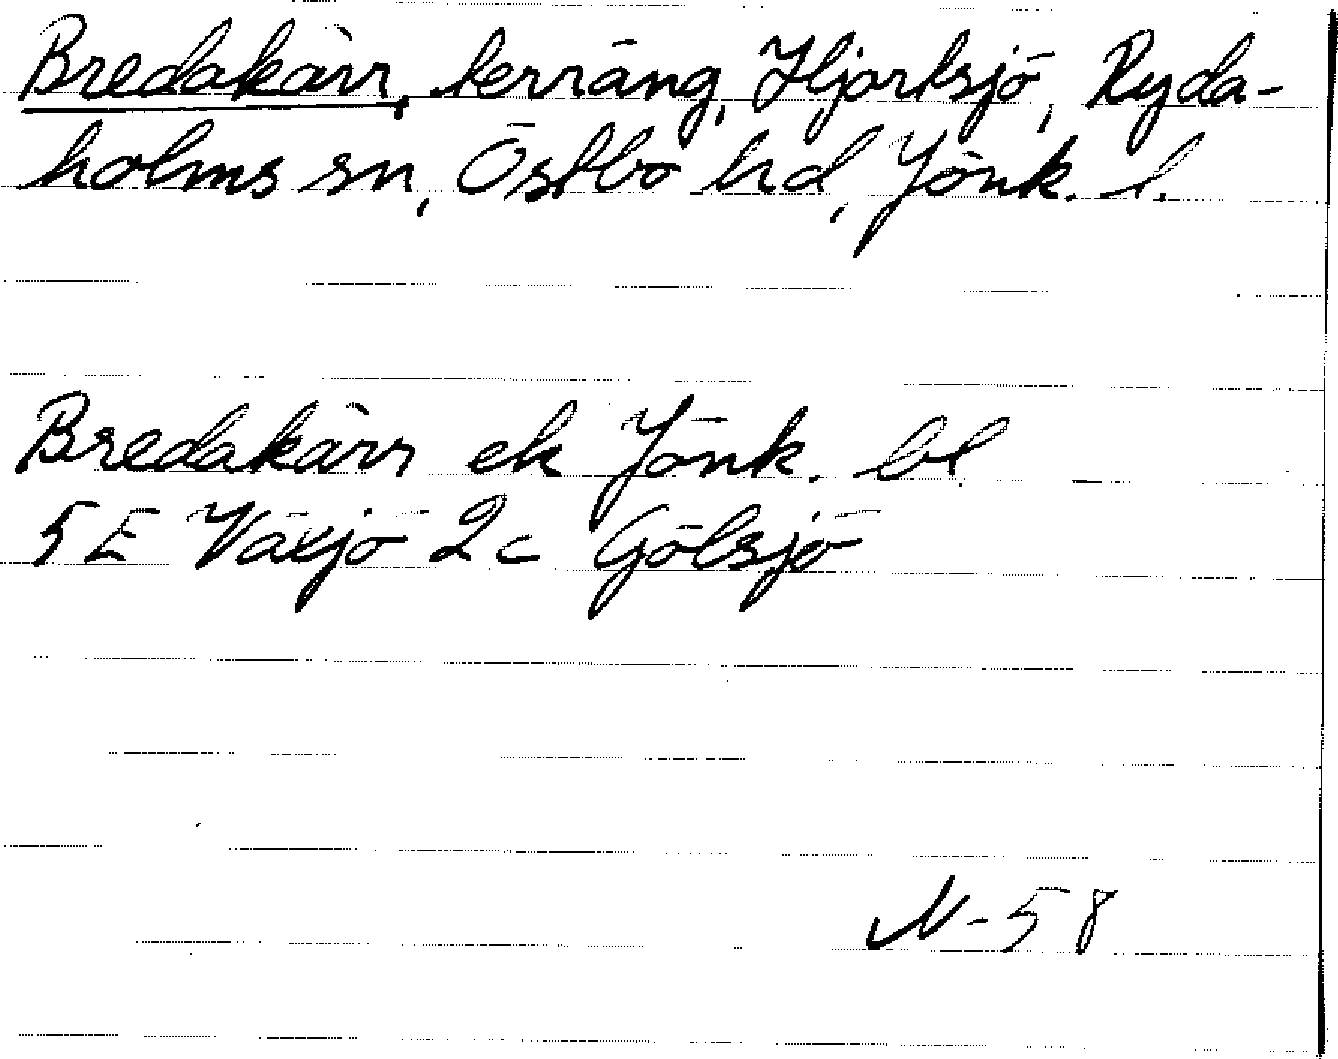 Bredakärr, terräng, Hjortsjö, Ryda-
holms sn, Östbo hd, Jönk. l.
Bredakärr ek Jönk. bl.
5E Växjö 2c Gölsjö
N-58